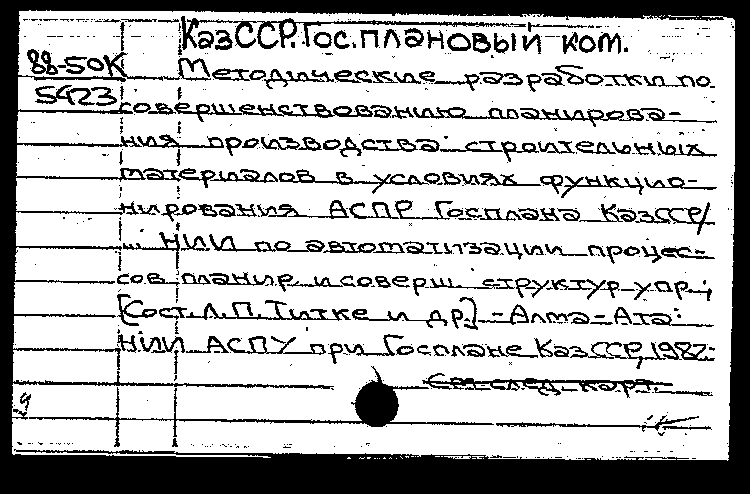 КазССР. Гос. плановый ком.
88-50К
5423
Методические разработки по
совершенствованию планирова-
ния производства строительных
материалов в условиях функцио-
нирования АСПР Госплана КазССР/
... НИИ по автоматизации процес-
сов планир. и соверш. структур упр.;
[Сост. Л.П. Титке и др.] - Алма-Ата:
НИИ АСПУ при Госплане КазССР, 1982-
См. след. карт.
9